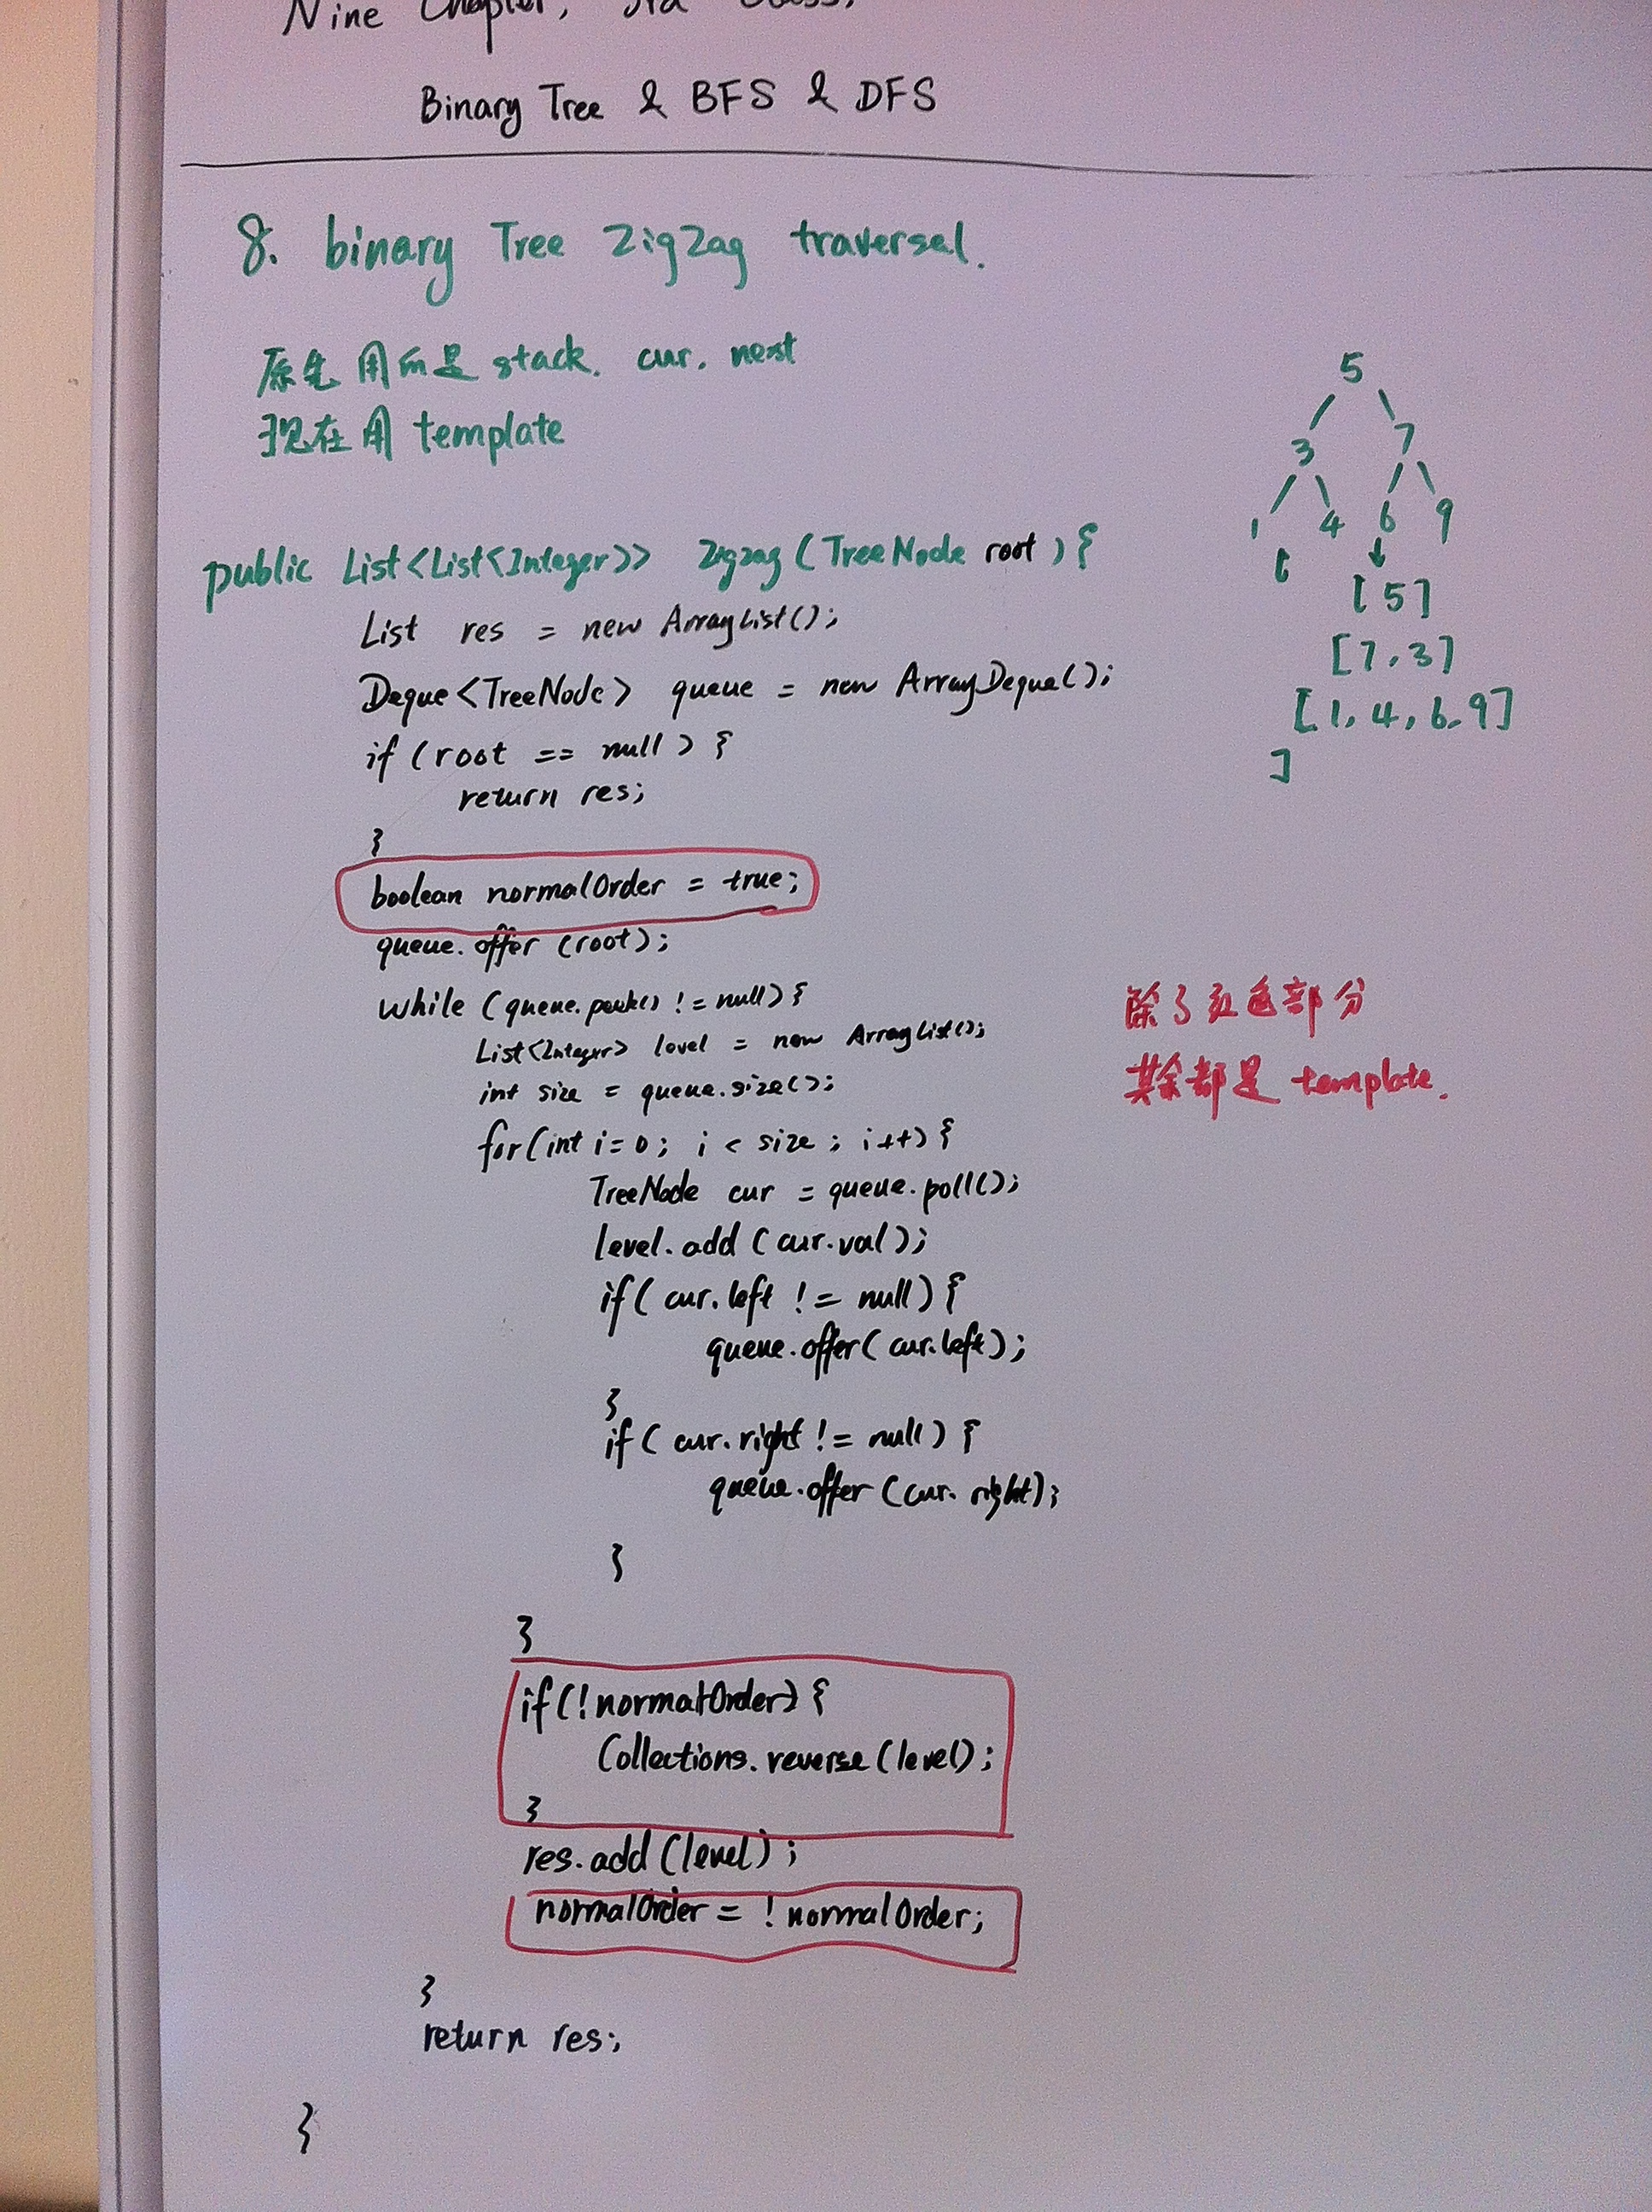 Nine Chapter, 3rd Class,
Binary Tree & BFS & DFS
8. binary Tree ZigZag traversal.
原先用的是 stack. cur. next
现在用 template
5
3 7
1 4 6 9
↓
[
[5]
[7, 3]
[1, 4, 6, 9]
]
public List<List<Integer>> zigzag (TreeNode root) {
List res = new ArrayList();
Deque<TreeNode> queue = new ArrayDeque();
if (root == null) {
return res;
}
boolean normalOrder = true;
queue.offer (root);
while (queue.peek() != null) {
List<Integer> level = new ArrayList();
int size = queue.size();
for(int i=0; i < size; i++) {
TreeNode cur = queue.poll();
level.add (cur.val);
if( cur.left != null) {
queue.offer( cur.left);
}
if( cur.right != null) {
queue.offer (cur.right);
}
}
if(!normalOrder) {
Collections.reverse(level);
}
res.add (level);
normalOrder = !normalOrder;
}
return res;
}
除了红色部分
其余都是 template.